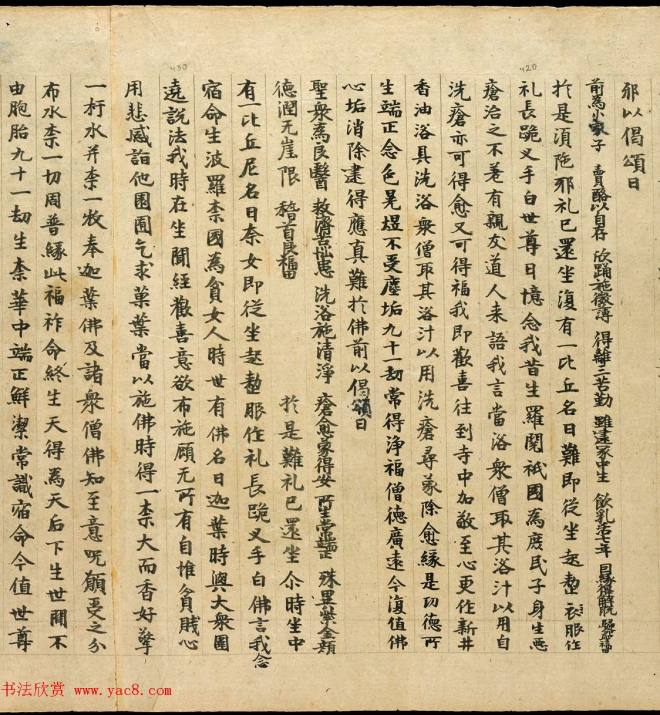 那以偈頌曰
前為小家子 賣酪以自存 欣踊施微薄 得離三苦勤 雖遭冢中生 飲乳活七年 因緣得解脫
於是須陁那礼已還坐復有一比丘名曰難即從坐起整衣服作
礼長跪叉手白世尊曰憶念我昔生羅閱祇國為庶民子身生惡
瘡治之不差有親友道人来語我言當浴衆僧取其浴汁以用
洗瘡亦可得愈又可得福我即歡喜往到寺中加敬至心更作新井
香油浴具洗浴衆僧取其浴汁以用洗瘡尋蒙除愈緣是功德所
生端正金色晃昱不受塵垢九十一劫常得淨福僧德廣遠今復值佛
心垢消除逮得應真難於佛前以偈頌曰
聖衆為良醫 救濟苦 患 洗浴施清淨 瘡愈蒙得安 所生常端正 殊異紫金顏
德潤无崖限 稽首良福田 於是難礼已還坐尒時坐中
有一比丘尼名曰奈女即從坐起整服作礼長跪叉手白佛言我念
宿命生波羅柰國為貧女人時世有佛名曰迦葉時與大衆圍
遶說法我時在坐聞經歡喜意欲布施顧无所有自惟貧賤心
用悲感詣他園圃乞求菓蓏當以施佛時得一柰大而香好擎
一杅水并柰一枚奉迦葉佛及諸衆僧佛知至意呪願受之分
布水柰一切周普緣此福祚命終生天得為天后下生世間不
由胞胎九十一劫生柰華中端正鮮潔常識宿命今值世尊
420
430
书法欣赏 www.yac8.com